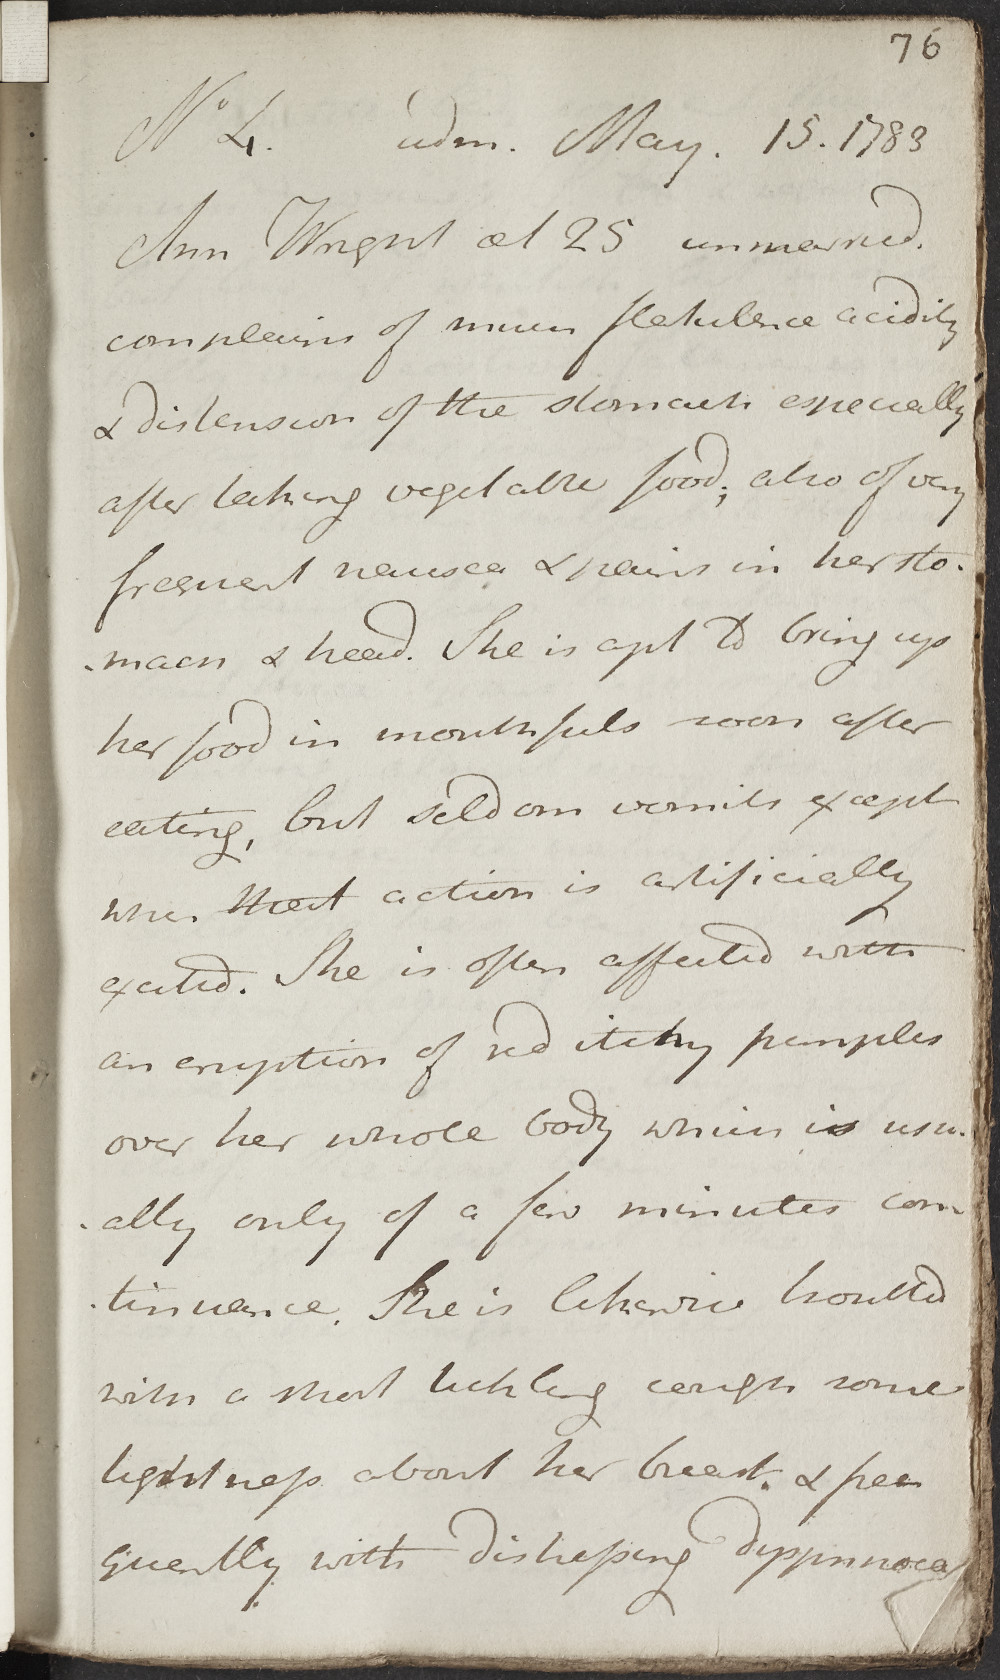 76
No 4. adm. May. 15. 1783
Ann Wright æt 25 unmarried.
complains of much flatulence acidity
& distension of the stomach especially
after taking vegetable food; also of very
frequent nausea & pains in her sto-
-mach & head. She is apt to bring up
her food in mouthfuls soon after
eating, but seldom vomits except
when that action is artificially
excited. She is often affected with
an eruption of red itchy pimples
over her whole body which is usu-
-ally only of a few minutes con-
-tinuance. She is likewise troubled
with a short tickling cough some
tightness about her breast. & fre
quently with distressing dyspnnoea